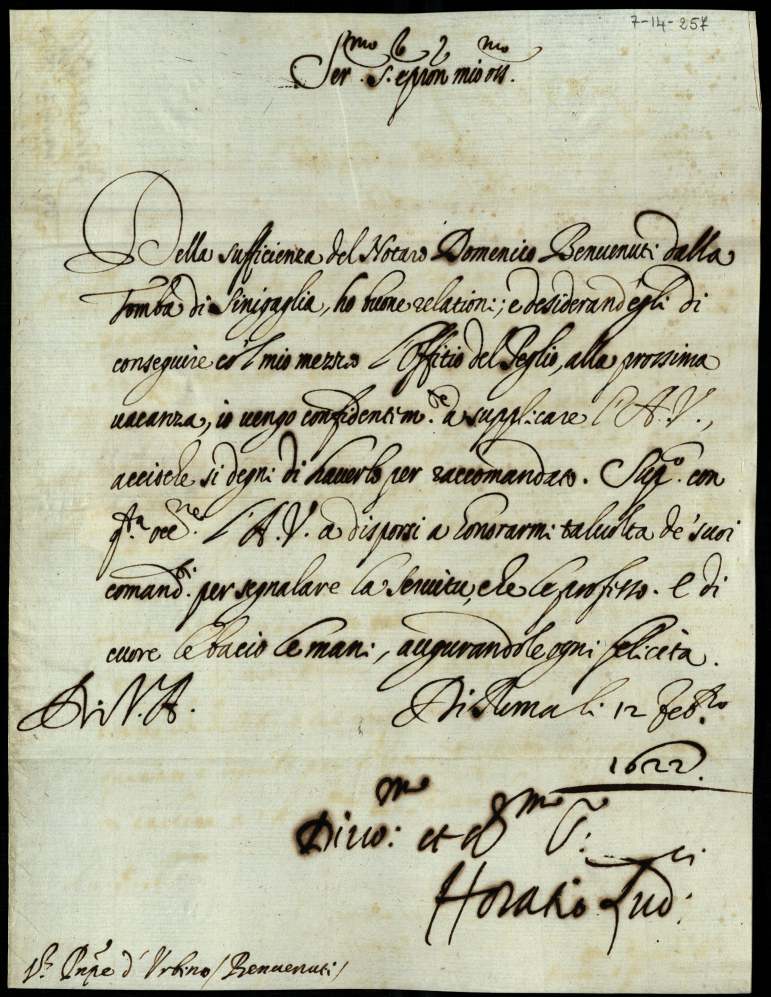 7-14-257
Ser.mo S.r e pron mio oss.mo
Della sufficienza del Notaro Domenico Benuenuti dalla
Tomba di Sinigaglia, ho buone relationi; e desiderand'egli di
conseguire co'l mio mezzo l'Offitio del Peglio, alla prossima
uacanza, io uengo confidentem.te à supplicare l'A.V.,
accioche si degni di hauerlo per raccomandato. Sup.co con
q.ta occ.ne l'A.V. a disporsi a honorarmi taluolta de' suoi
comand.ti per segnalare la seruitù, che le professo. E di
cuore le bacio le mani, augurandole ogni felicità.
Di V.A. Di Roma li 12 Feb.ro
1622.
Diuo.mo et
Horatio Lud.ci
S.r Pnpe d'Urbino /Benuenuti/